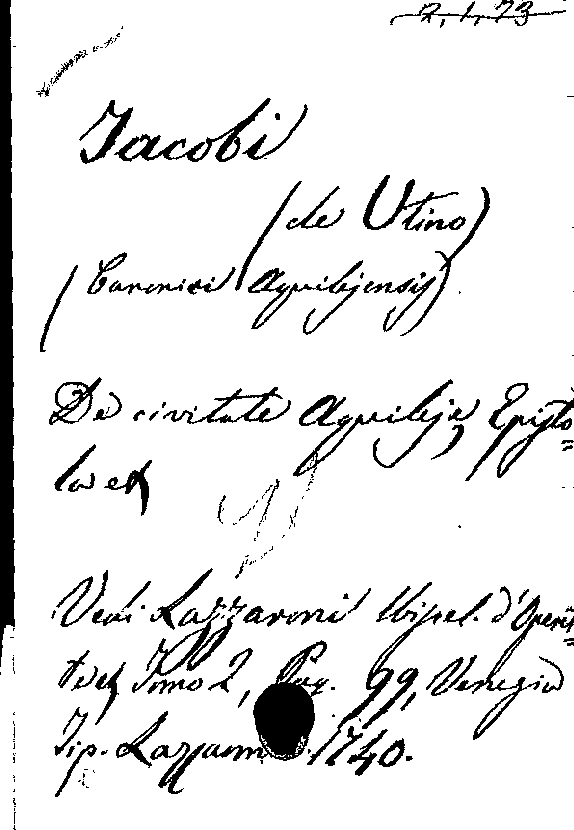 2, 1, 73
Jacobi
(de Utino)
(Canonici Aquilejensis)
De civitate Aquileje, Episto=
la et
Vedi Lazzaroni Miscel. d'Operet=
te Tomo 2, Pag. 99, Venezia
Tip. Lazzaroni 1740.